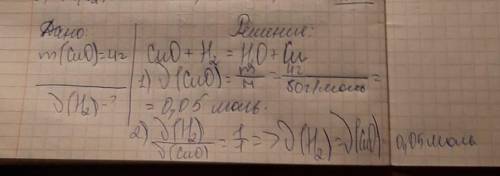 Дано:
m(CuO)=4г
ν(H₂)-?
Решение:
CuO + H₂ = H₂O + Cu
1) ν(CuO) = m/M = 4г/80г/моль =
= 0,05 моль.
2) ν(H₂)/ν(CuO) = 1/1 => ν(H₂) = ν(CuO) = 0,05 моль